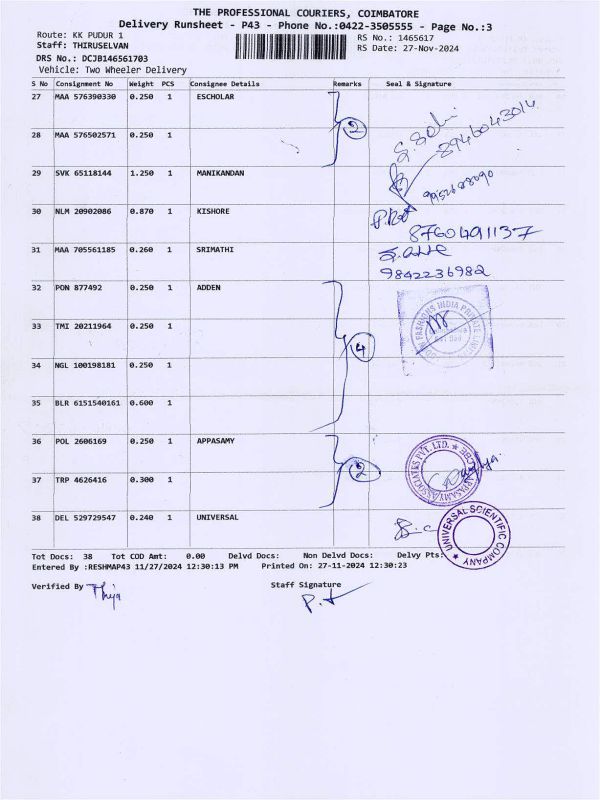 THE PROFESSIONAL COURIERS, COIMBATORE
Delivery Runsheet - P43 - Phone No.:0422-3505555 - Page No.:3
Route: KK PUDUR 1
RS No.: 1465617
Staff: THIRUSELVAN
RS Date: 27-Nov-2024
DRS No.: DCJB146561703
Vehicle: Two Wheeler Delivery
S No Consignment No Weight PCS Consignee Details Remarks Seal & Signature
27 MAA 576390330 0.250 1 ESCHOLAR
2
28 MAA 576502571 0.250 1
8946043014
29 SVK 65118144 1.250 1 MANIKANDAN
9952688090
30 NLM 20902086 0.870 1 KISHORE
8760491137
31 MAA 705561185 0.260 1 SRIMATHI
9842236982
32 PON 877492 0.250 1 ADDEN
33 TMI 20211964 0.250 1
4
FASHIONS INDIA PRIVATE
34 NGL 100198181 0.250 1
35 BLR 6151540161 0.600 1
36 POL 2606169 0.250 1 APPASAMY
2
APPASAMY ASSOCIATES PVT. LTD. ★ CBE
37 TRP 4626416 0.300 1
38 DEL 529729547 0.240 1 UNIVERSAL
UNIVERSAL SCIENTIFIC COMPANY ★
Tot Docs: 38 Tot COD Amt: 0.00 Delvd Docs: Non Delvd Docs: Delvy Pts:
Entered By :RESHMAP43 11/27/2024 12:30:13 PM Printed On: 27-11-2024 12:30:23
Verified By
Staff Signature